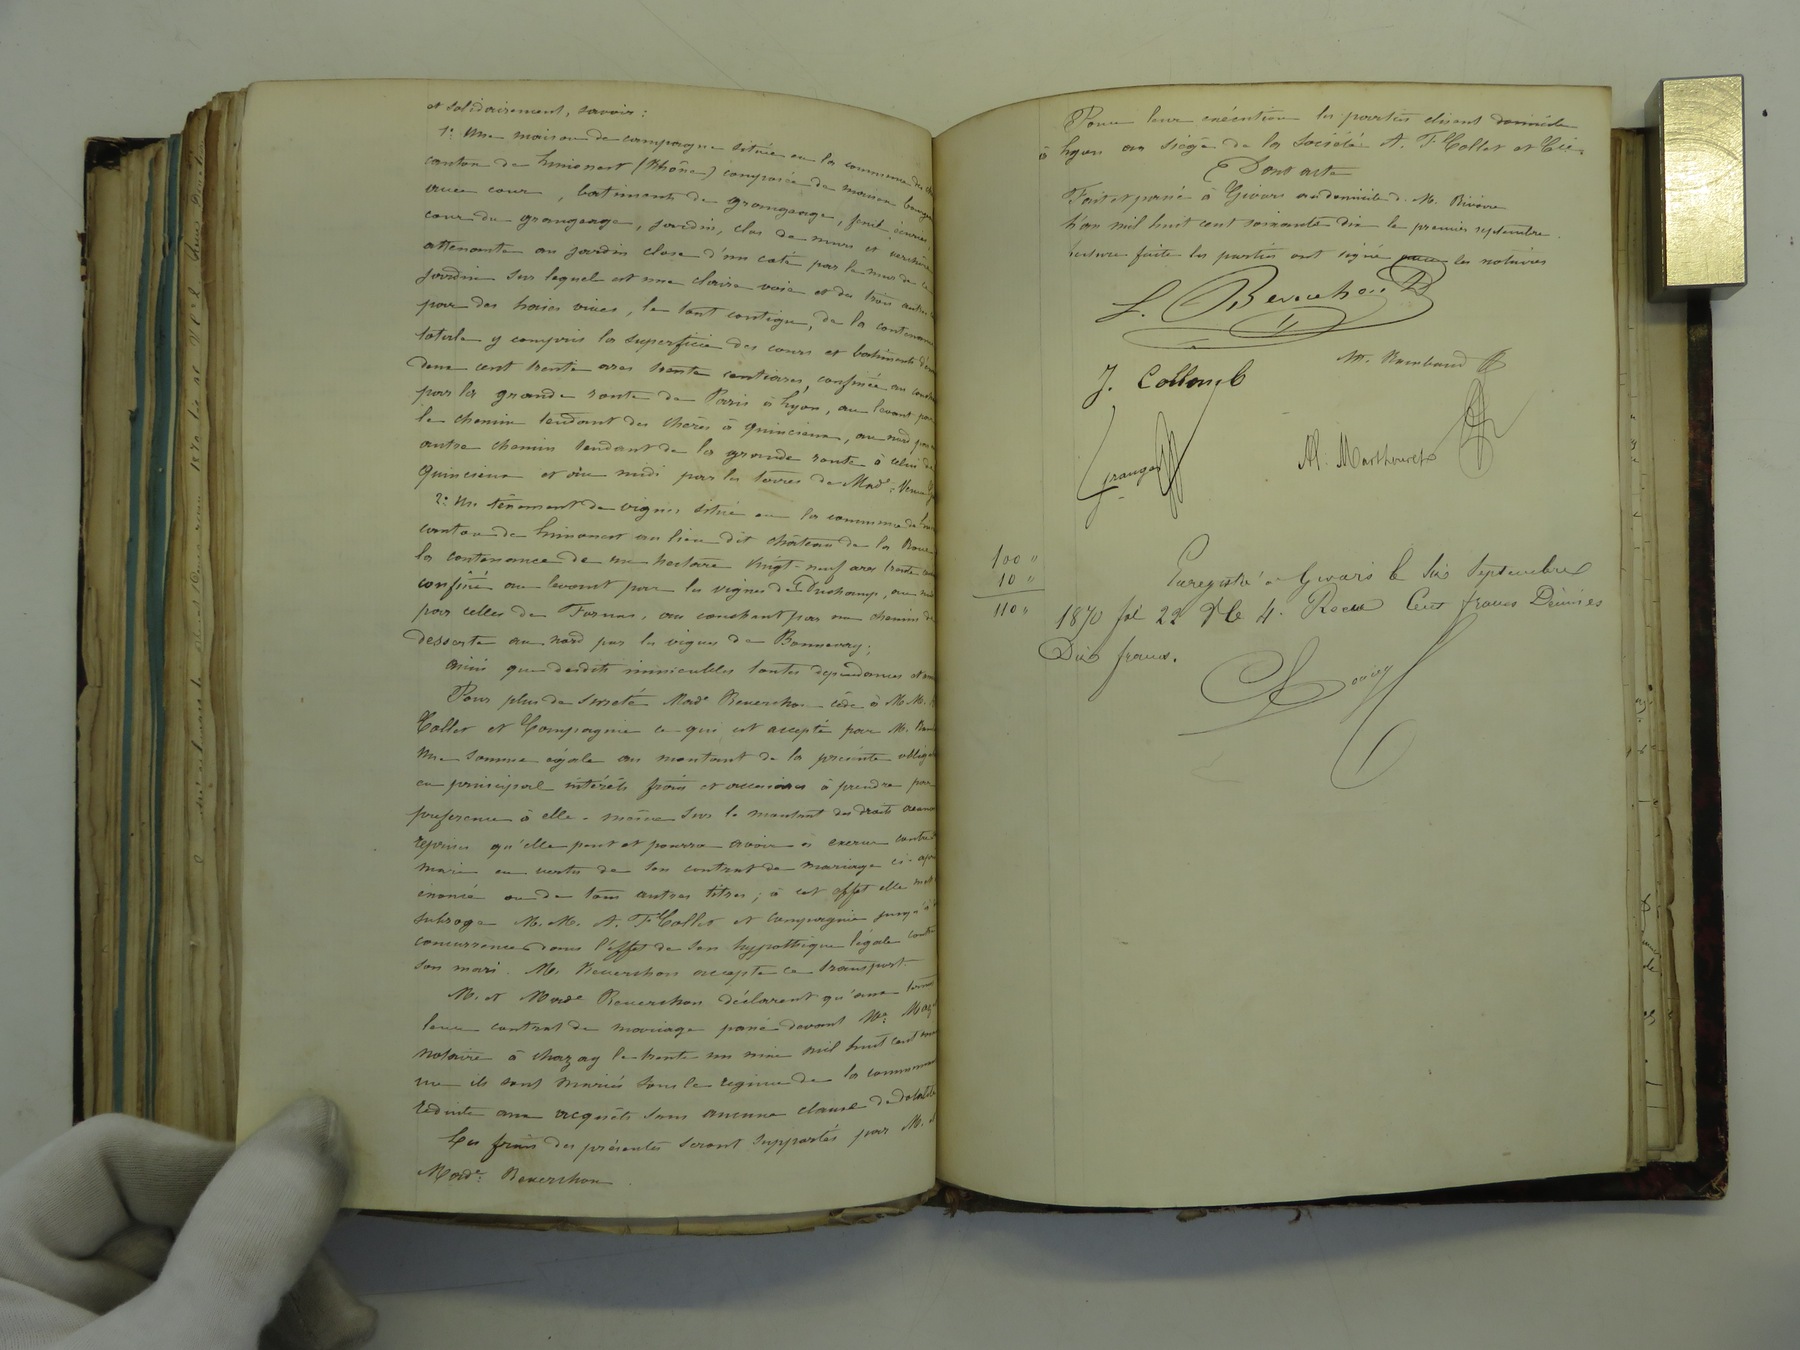 et solidairement, savoir :
1° Une maison de campagne située en la commune des
canton de Limonest (Rhône) composée de maison bourgeoise
avec cour, batiments de grangeage, puits, écuries,
cour du grangeage, jardin, clos de murs et verchère
attenante au jardin close d'un coté par le mur de ce
jardin sur lequel est une claire voie et des trois autres
par des haies vives, le tout contigu, de la contenance
totale y compris la superficie des cours et batiments d'en
deux cent trente ares trente centiares, confinée au couchant
par la grande route de Paris à Lyon, au levant par
le chemin tendant des Chères à Quincieux, au nord par
autre chemin tendant de la grande route à celui de
Quincieux et au midi par les terres de Made Veuve
2° Un ténement de vignes situé en la commune de
canton de Limonest au lieu dit château de la
la contenance de un hectare vingt-neuf ares trente
confiné au levant par les vignes de Duchamp, au midi
par celles de Farnas, au couchant par un chemin de
desserte au nord par les vignes de Bonnevay ;
ainsi que desdits immeubles toutes dépendances et
Pour plus de sureté Made Reverchon cède à MM.
Collet et Compagnie ce qui est accepté par M.
une somme égale au montant de la présente obligation
en principal intérêts frais et accessoires à prendre par
preference à elle-même sur le montant des droits
reprises qu'elle peut et pourra avoir à exercer contre
mari en vertu de son contrat de mariage ci-après
énoncé ou de tous autres titres ; à cet effet elle met
subroge M.M. A. F. Collet et compagnie jusqu'à
concurrence dans l'effet de son hypothèque légale contre
son mari. M. Reverchon accepte ce transport.
M. et Made Reverchon déclarent qu'aux termes
leur contrat de mariage passé devant Me
notaire à Chazay le trente un mai mil huit cent
un ils sont mariés sous le régime de la communauté
réduite aux acquets sans aucune clause de dotalité
Les frais des présentes seront supportés par M. et
Made Reverchon.
Pour leur exécution les parties élisent domicile
à Lyon au siège de la société A. F. Collet et Cie
Dont acte
Fait et passé à Givors au domicile de M. Rivoire
L'an mil huit cent soixante dix le premier septembre.
Lecture faite les parties ont signé avec les notaires
L. Reverchon
M. Rambaud
J. Collomb
Granger
Al. Marthouret
100 "
10 "
110 "
Enregistré à Givors le Six Septembre
1870 fol 22 Vo Ce 4. Reçu Cent francs Décimes
Dix francs.